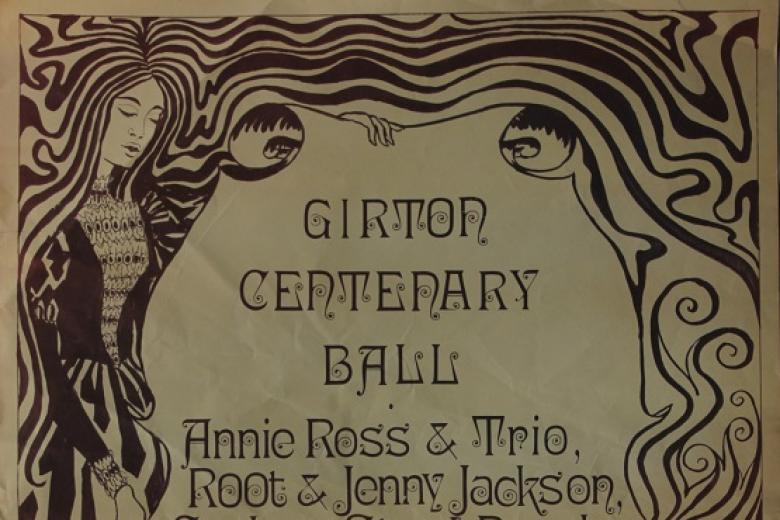 GIRTON
CENTENARY
BALL
Annie Ross & Trio,
Root & Jenny Jackson,